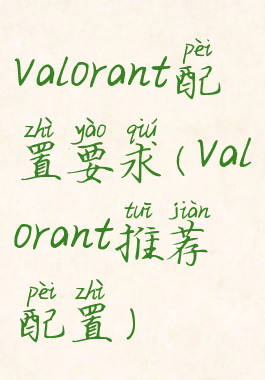 pèi
Valorant配
zhì yào qiú
置要求(Val
tuī jiàn
orant推荐
pèi zhì
配置)